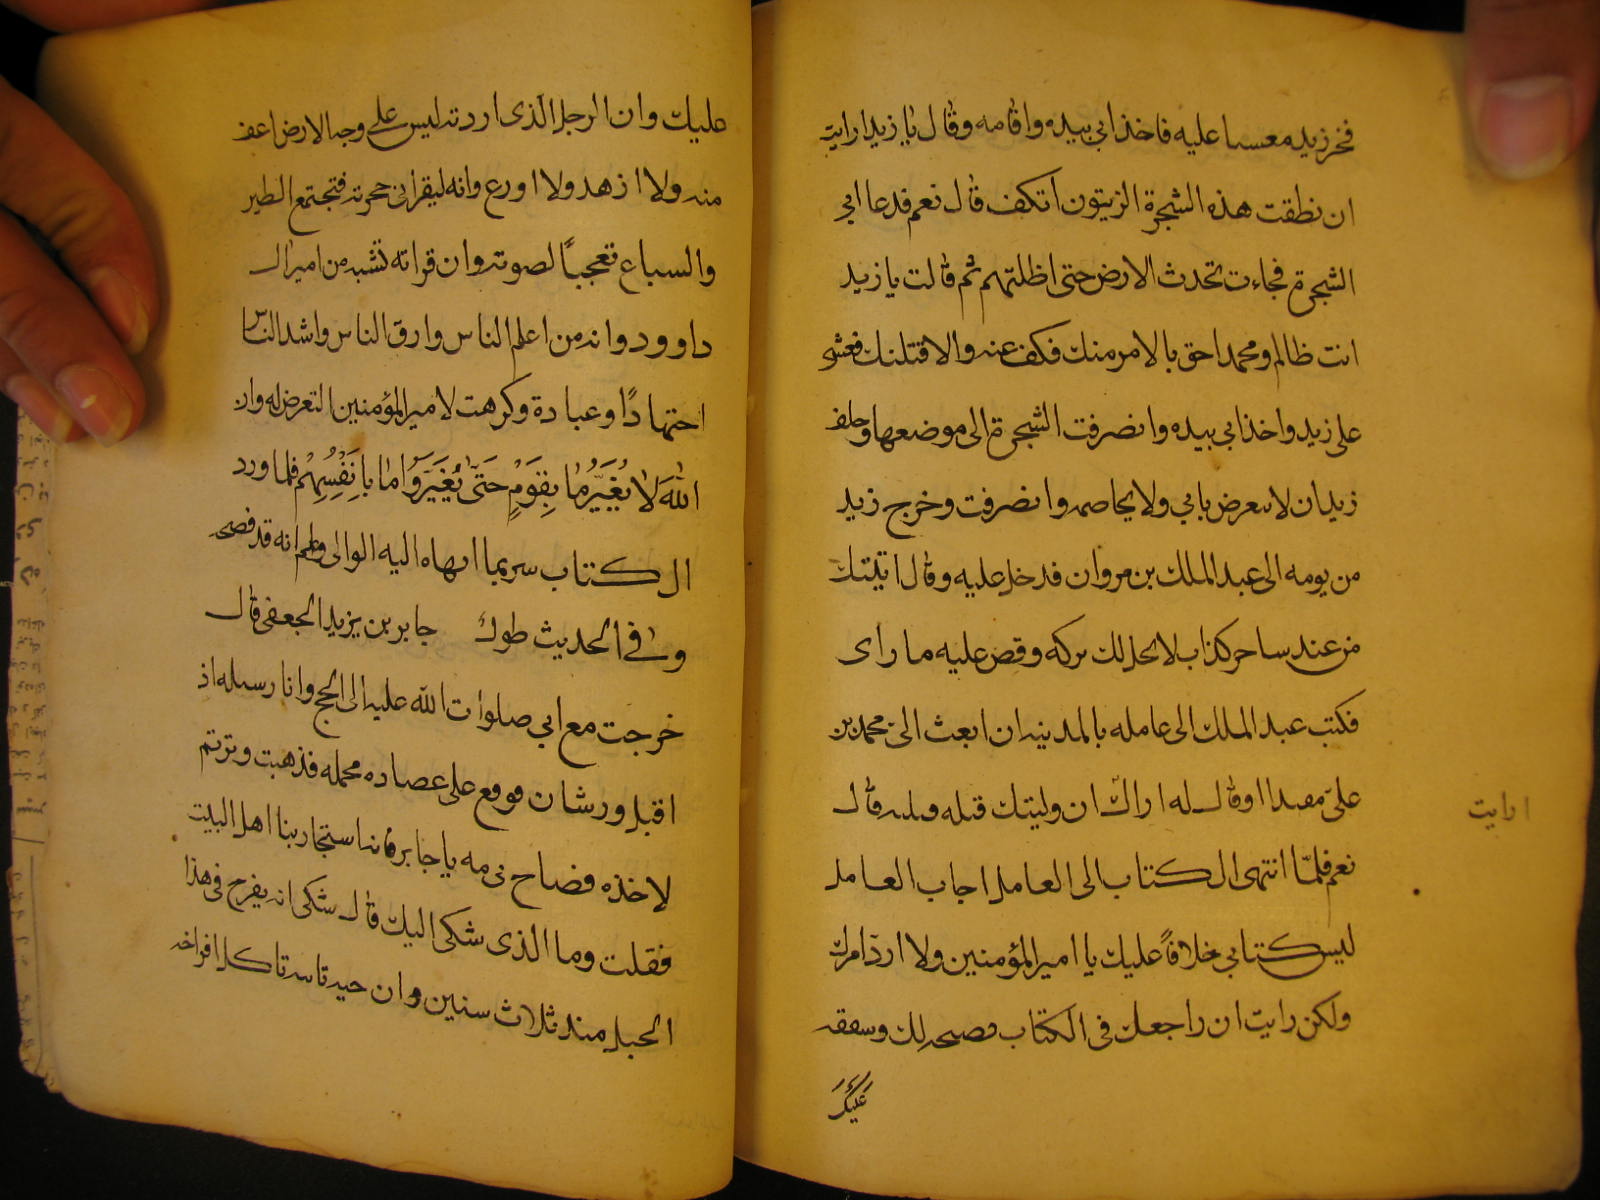 فخر زيد مغشيا عليه فاخذ ابي بيده واقامه وقال يا زيد ارايت
ان نطقت هذه الشجرة الزيتون اتكف قال نعم فدعا ابي
الشجرة فجاءت تحدث الارض حتى اظلتهم ثم قالت يا زيد
انت ظالم ومحمد احق بالامر منك فكف عنه والا قتلتك فغشي
على زيد واخذ ابي بيده وانصرفت الشجرة الى موضعها وحلف
زيد ان لا يتعرض بابي ولا يخاصمه وانصرفت وخرج زيد
من يومه الى عبد الملك بن مروان فدخل عليه وقال اتيتك
من عند ساحر كذاب لا يحل لك تركه وقص عليه ما راى
فكتب عبد الملك الى عامله بالمدينه ان ابعث الى محمد بن
علي مقيدا وقال له اراك ان وليتك قتله قتلته قال
نعم فلمّا انتهى الكتاب الى العامل اجاب العامل
ليس كتابي خلافاً عليك يا امير المؤمنين ولا ارد امرك
ولكن رايت ان راجعك في الكتاب نصيحه لك وشفقه
عليك
ارايت
عليك وان الرجل الذى اردته ليس على وجه الارض اعف
منه ولا ازهد ولا اورع وانه ليقرا في حجرته فتجتمع الطير
والسباع تعجباً لصوته وان قراته تشبه من امير ال
داوود وانه من اعلم الناس وارق الناس واشد الناس
اجتهادًا وعبادة وكرهت لامير المؤمنين التعرض له وان
اللهَ لا يُغَيِّرُ مٰا بِقَوْمٍ حَتّى يُغَيِّرَوُا ما بِاَنْفِسِهْم فلما ورد
الكتاب سر بما انهاه اليه الوالى وعلم انه قد نصحه
وفي الحديث طول جابر بن يزيد الجعفى قال
خرجت مع ابي صلوات الله عليه الى الحج وانا زميله اذ
اقبل ورشان فوقع على عضاده محمله فذهبت وترنم
لاخذه فصاح بي مه يا جابر فانه استجار بنا اهل البيت
فقلت وما الذى شكى اليك قال شكى انه يفرخ فى هذا
الجبل منذ ثلاث سنين وان حيه تاتيه تاكل افراخه